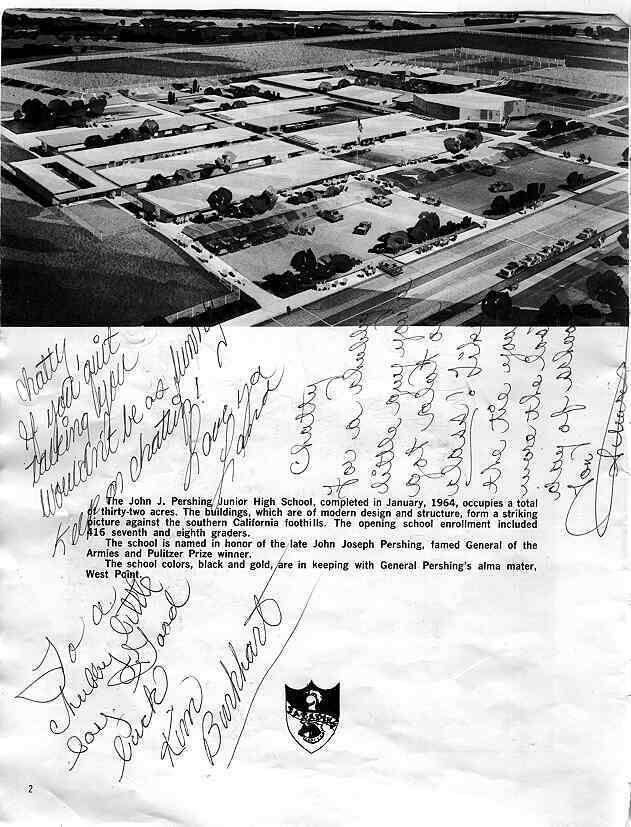 Chatty
If you'd quit
talking you
wouldn't be as funny
Keep on chatting!
Love ya
Chatty
For a
little guy you
day of school
The John J. Pershing Junior High School, completed in January, 1964, occupies a total
of thirty-two acres. The buildings, which are of modern design and structure, form a striking
picture against the southern California foothills. The opening school enrollment included
416 seventh and eighth graders.
The school is named in honor of the late John Joseph Pershing, famed General of the
Armies and Pulitzer Prize winner.
The school colors, black and gold, are in keeping with General Pershing's alma mater,
West Point.
To a
Chubby little
Good
luck
Kim
Burkhart
2